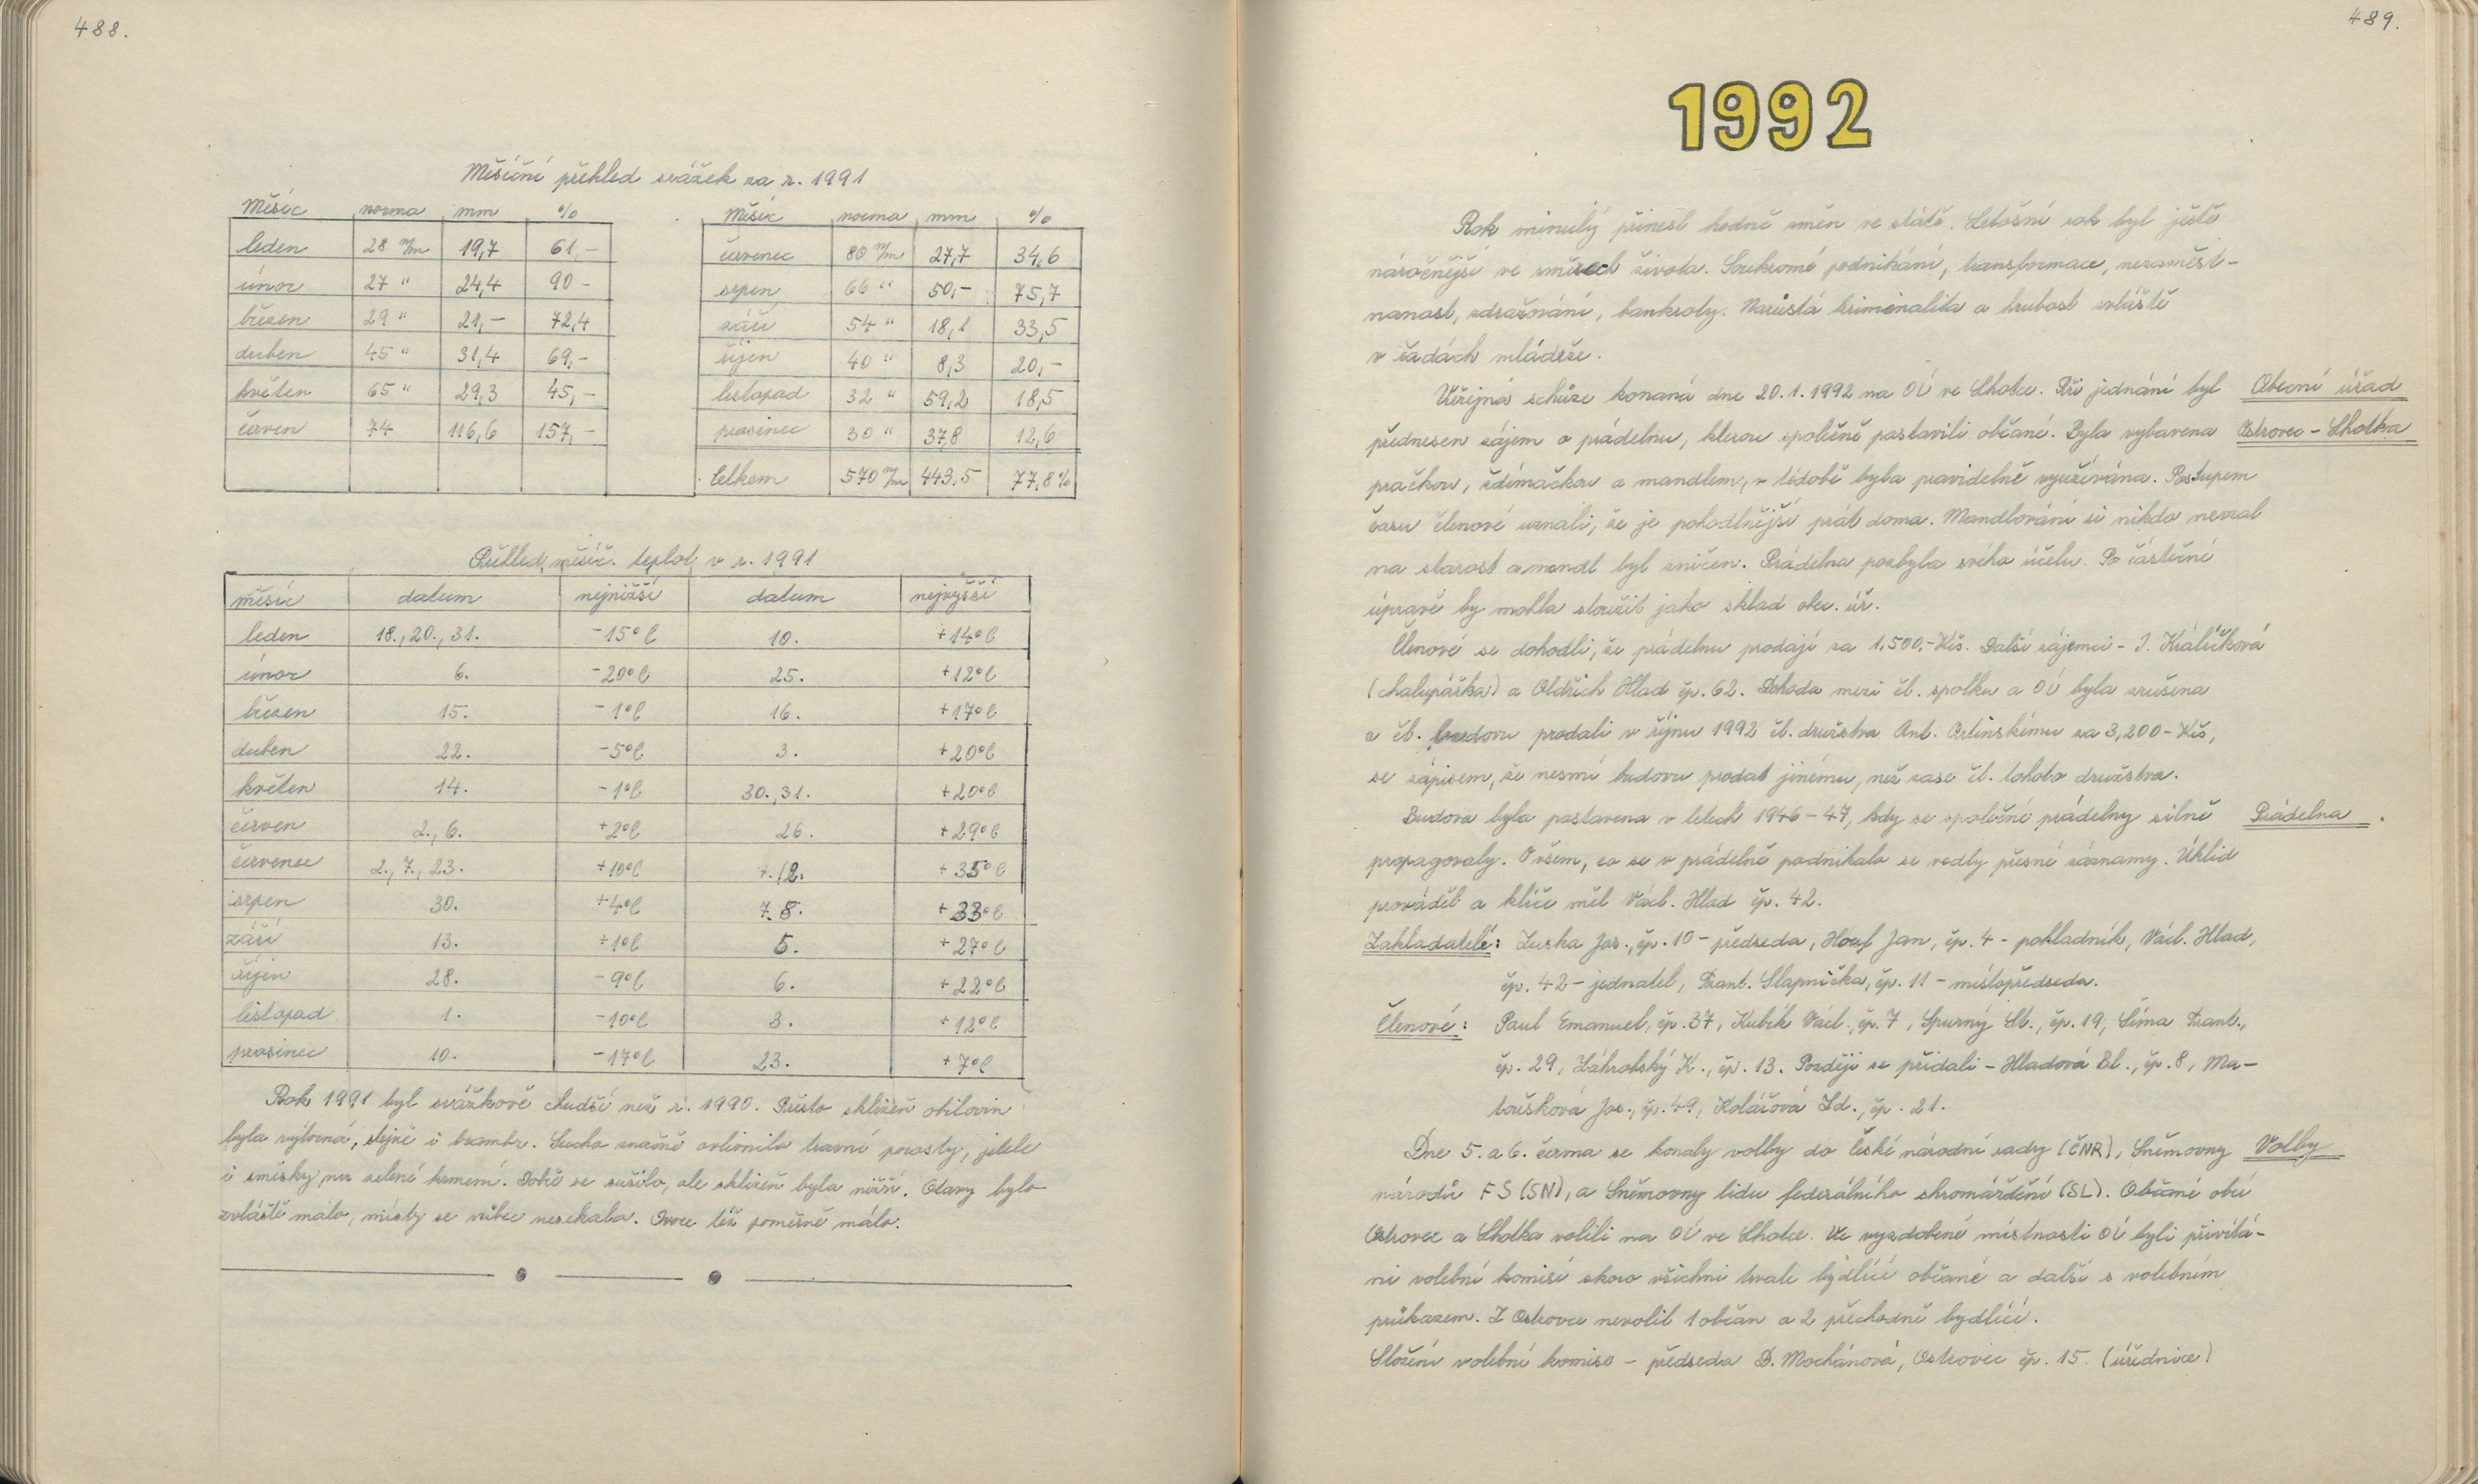 488.
Měsíční přehled srážek za r. 1991
Měsíc norma mm %
leden 28 m/m 19,7 61,-
únor 27 " 24,4 90 -
březen 29 " 21,- 72,4
duben 45 " 31,4 69,-
květen 65 " 29,3 45,-
červen 74 116,6 157,-
Měsíc norma mm %
červenec 80 m/m 27,7 34,6
srpen 66 " 50,- 75,7
září 54 " 18,1 33,5
říjen 40 " 8,3 20,-
listopad 32 " 59,2 18,5
prosinec 30 " 37,8 12,6
Celkem 570 m/m 443,5 77,8%
Přehled měsíč. teplot v r. 1991
měsíc datum nejnižší datum nejvyšší
leden 18., 20., 31. -15°C 10. +14°C
únor 6. -20°C 25. +12°C
březen 15. -1°C 16. +17°C
duben 22. -5°C 3. +20°C
květen 14. -1°C 30., 31. +20°C
červen 2., 6. +2°C 26. +29°C
červenec 2., 7., 23. +10°C 12. +35°C
srpen 30. +4°C 7. 8. +33°C
září 13. +1°C 5. +27°C
říjen 28. -9°C 6. +22°C
listopad 1. -10°C 3. +12°C
prosinec 10. -17°C 23. +7°C
Rok 1991 byl srážkově chudší než r. 1990. Přesto sklizeň obilovin
byla výborná, stejně i brambr. Sucho značně ovlivnilo travní porosty, jetele
i směsky na zelené krmení. Dobře se sušilo, ale sklizeň byla nižší. Otavy bylo
zvláště málo, místy se vůbec nesekala. Ovoce též poměrně málo.
489.
1992
Rok minulý přinesl hodně změn ve státě. Letošní rok byl ještě
náročnější ve směrech života. Soukromé podnikání, transformace, nezaměst-
nanost, zdražování, bankroty. Narůstá kriminalita a hrubost zvláště
v řadách mládeže.
Veřejná schůze konaná dne 20.1.1992 na OÚ ve Lhotce. Při jednání byl Obecní úřad
přednesen zájem o prádelnu, kterou společně postavili občané. Byla vybavena Ostrovec - Lhotka
pračkou, ždímačkou a mandlem, v té době byla pravidelně využívána. Postupem
času členové uznali, že je pohodlnější prát doma. Mandlování si nikdo nevzal
na starost a mandl byl zničen. Prádelna pozbyla svého účelu. Po částečné
úpravě by mohla sloužit jako sklad obec. úř.
Členové se dohodli, že prádelnu prodají za 1.500,- Kčs. Další zájemci - J. Králíčková
(chalupářka) a Oldřich Hlad čp. 62. Dohoda mezi čl. spolku a OÚ byla zrušena
a čl. budovu prodali v říjnu 1992 čl. družstva Ant. Cetinskému za 3,200- Kčs,
se zápisem, že nesmí budovu prodat jinému, než zase čl. tohoto družstva.
Budova byla postavena v letech 1946-47, kdy se společné prádelny silně Prádelna
propagovaly. O všem, co se v prádelně podnikalo se vedly přesné záznamy. Úklid
prováděl a klíče měl Václ. Hlad čp. 42.
Zakladatelé: Zuska Jos., čp. 10 - předseda, Houf Jan, čp. 4 - pokladník, Václ. Hlad,
čp. 42 - jednatel, Frant. Slapnička, čp. 11 - místopředseda.
Členové: Paul Emanuel, čp. 37, Kubík Václ., čp. 7, Spurný St., čp. 19, Šíma Frant.,
čp. 29, Záhrobský K., čp. 13. Později se přidali - Hladová Bl., čp. 8, Ma-
toušková Jos., čp. 49, Kolářová Zd., čp. 21.
Dne 5. a 6. června se konaly volby do české národní rady (ČNR), Sněmovny Volby
národů FS (SN), a Sněmovny lidu federálního shromáždění (SL). Občané obcí
Ostrovec a Lhotka volili na OÚ ve Lhotce. Ve vyzdobené místnosti OÚ byli přivítá-
ni volební komisí skoro všichni trvale bydlící občané a další s volebním
průkazem. Z Ostrovce nevolil 1 občan a 2 přechodně bydlící.
Složení volební komise - předseda D. Mochánová, Ostrovec čp. 15. (úřednice)